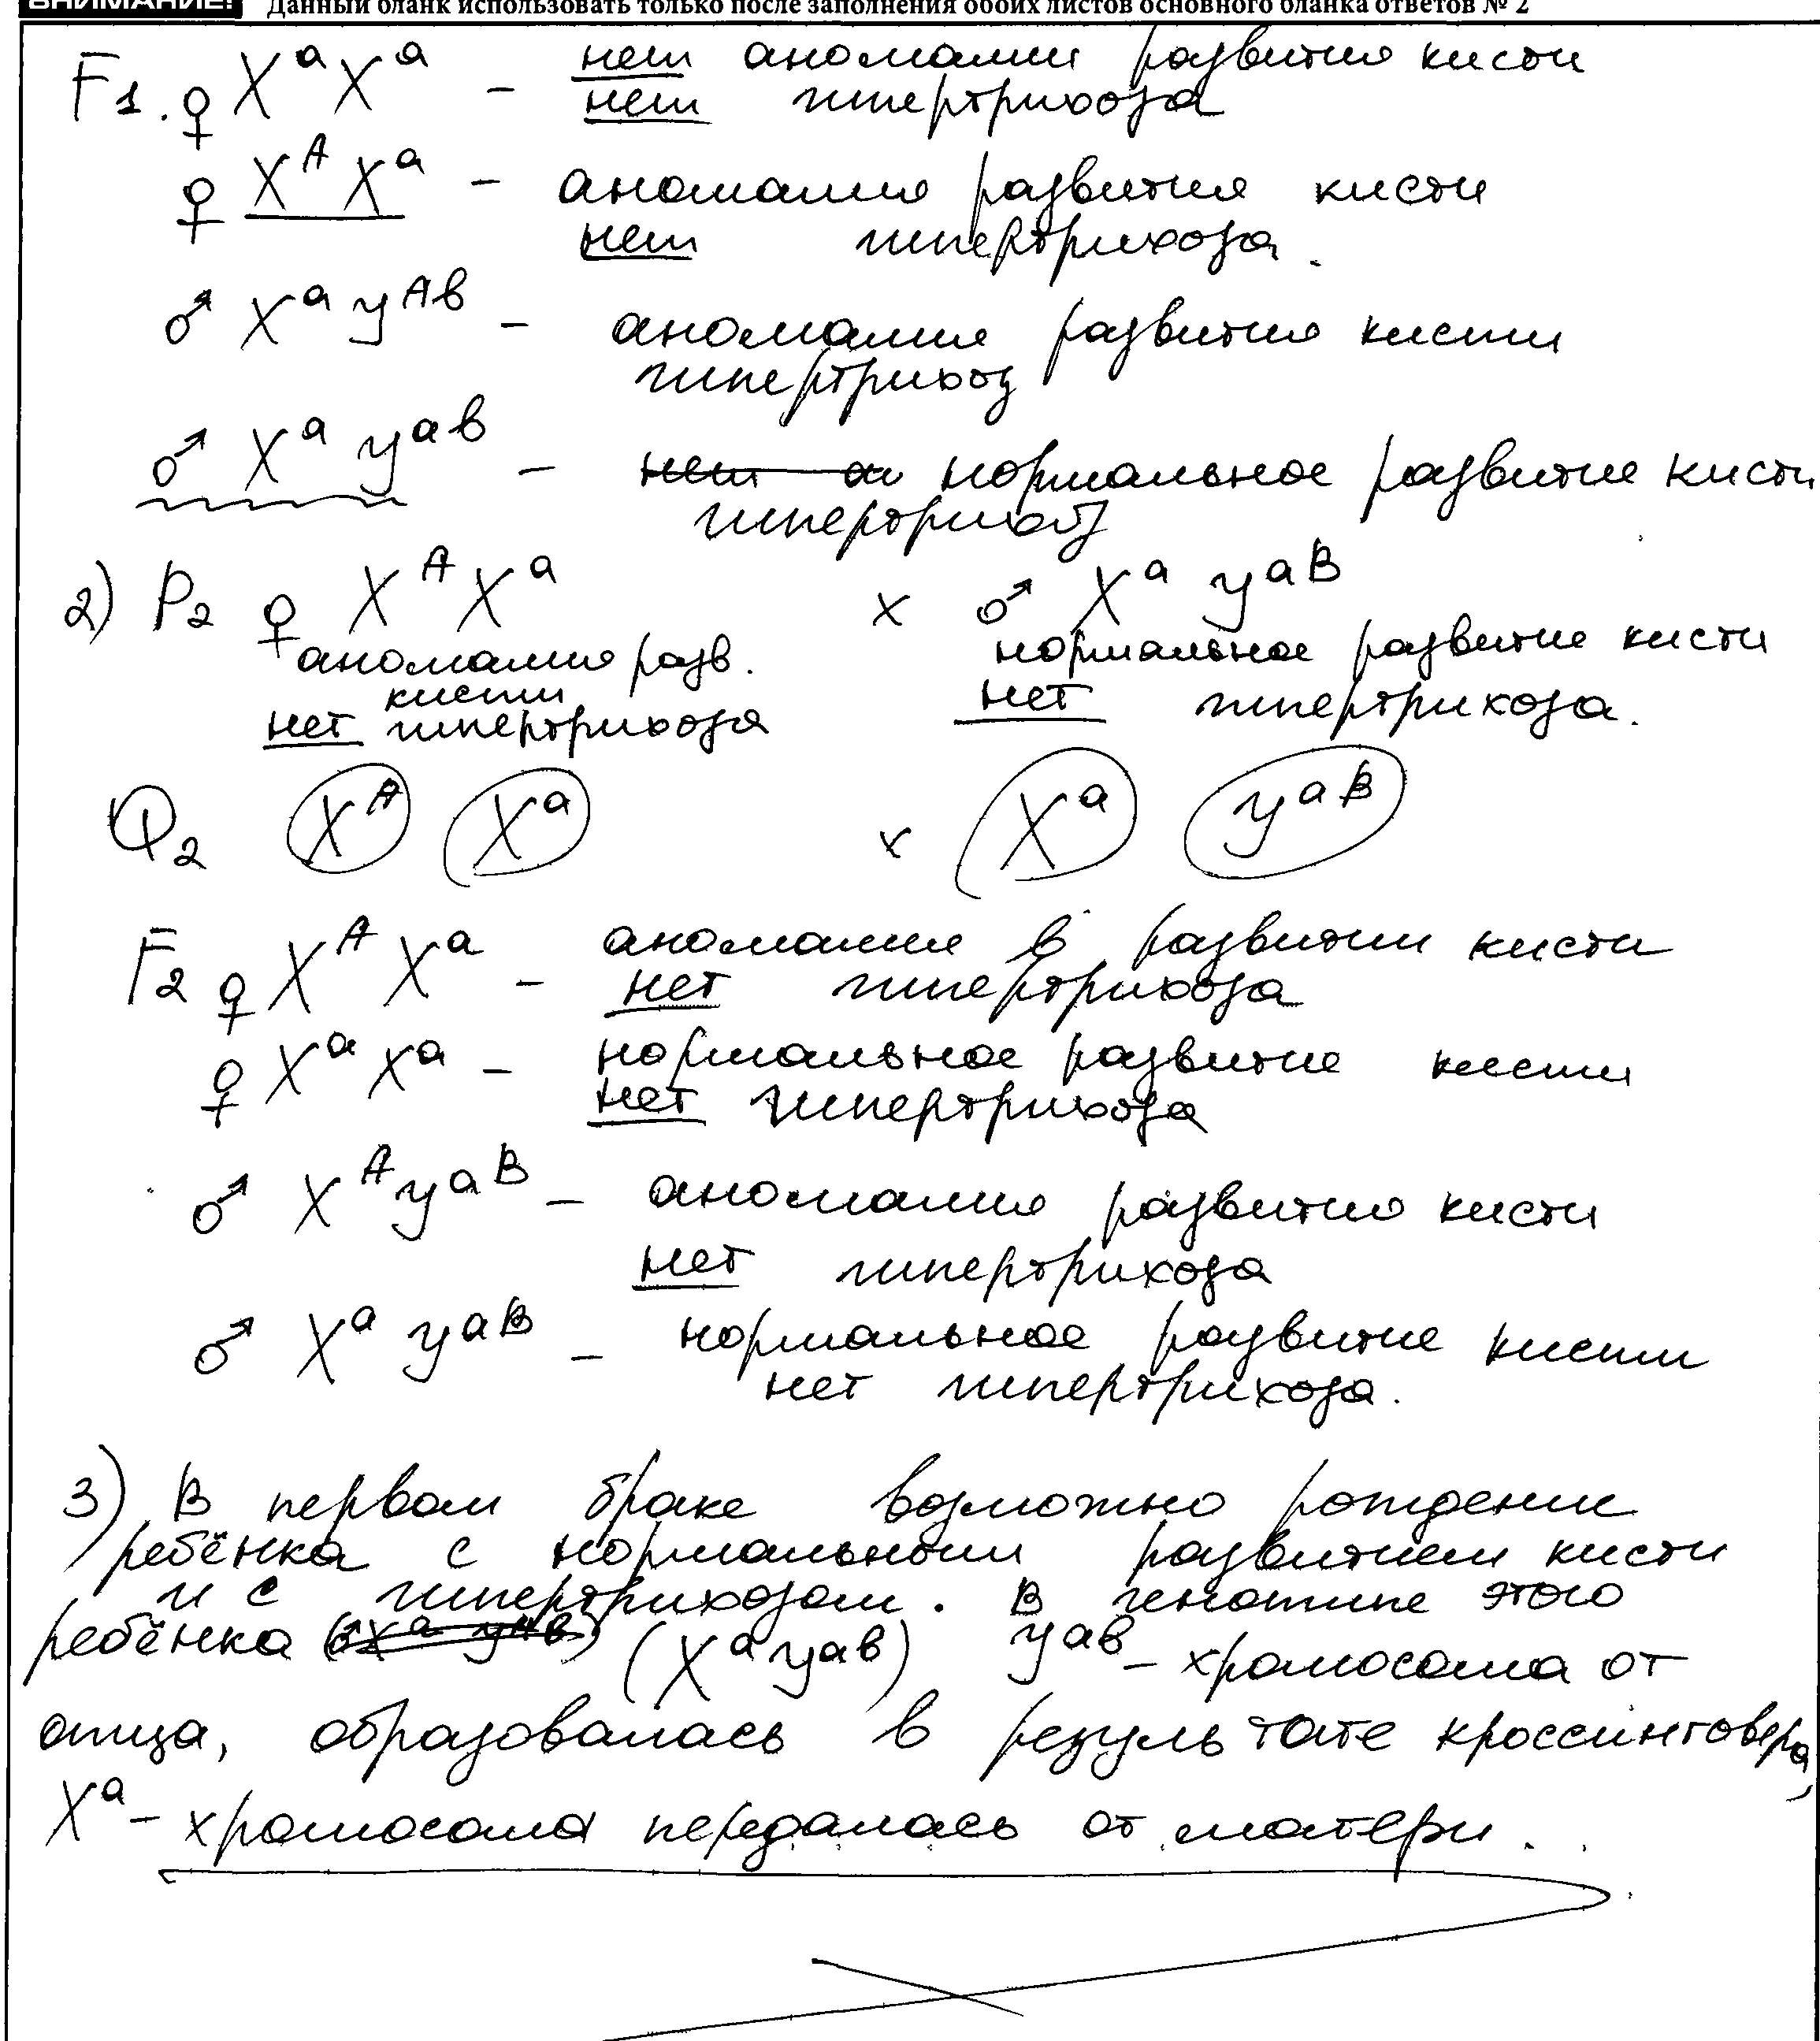 ВНИМАНИЕ! Данный бланк использовать только после заполнения обоих листов основного бланка ответов № 2
F1. ♀ XᵃXᵃ – нет аномалии развития кисти
нет гипертрихоза
♀ XᴬXᵃ – аномалия развития кисти
нет гипертрихоза.
♂ Xᵃ yᴬᵇ – аномалия развития кисти
гипертрихоз
♂ Xᵃ yᵃᵇ – нет а нормальное развитие кисти
гипертрихоз
2) P₂ ♀ Xᴬ Xᵃ x ♂ Xᵃ yᵃᴮ
аномалия разв. нормальное развитие кисти
кисти
нет гипертрихоза нет гипертрихоза.
G₂ Xᴬ Xᵃ x Xᵃ yᵃᴮ
F₂ ♀ Xᴬ Xᵃ – аномалия в развитии кисти
нет гипертрихоза
♀ Xᵃ Xᵃ – нормальное развитие кисти
нет гипертрихоза
♂ Xᴬ yᵃᴮ – аномалия развития кисти
нет гипертрихоза
♂ Xᵃ yᵃᴮ – нормальное развитие кисти
нет гипертрихоза.
3) В первом браке возможно рождение
ребёнка с нормальным развитием кисти
и с гипертрихозом. В генотипе этого
ребёнка (Xᵃ yᵃᵇ) yᵃᵇ – хромосома от
отца, образовалась в результате кроссинговера,
Xᵃ – хромосома передалась от матери.